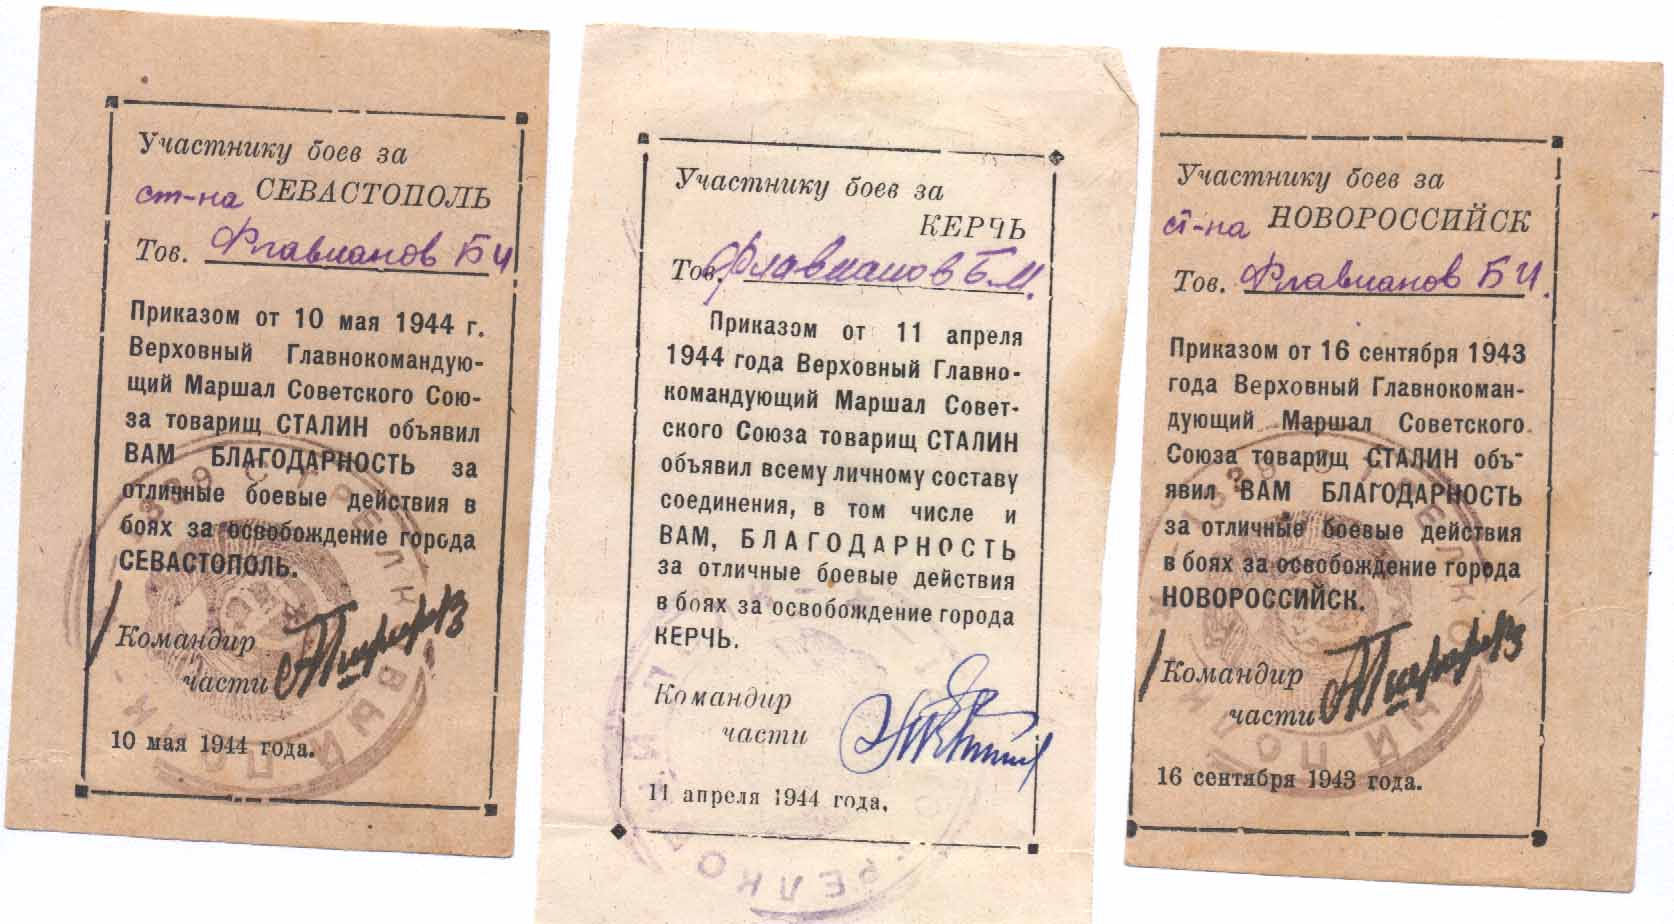 Участнику боев за
ст-на СЕВАСТОПОЛЬ
Тов. Флавианов Б И
Приказом от 10 мая 1944 г.
Верховный Главнокомандую-
щий Маршал Советского Сою-
за товарищ СТАЛИН объявил
ВАМ БЛАГОДАРНОСТЬ за
отличные боевые действия в
боях за освобождение города
СЕВАСТОПОЛЬ.
Командир
части
10 мая 1944 года.
1339 СТРЕЛКОВЫЙ ПОЛК
Участнику боев за
КЕРЧЬ
Тов. Флавианов Б.И.
Приказом от 11 апреля
1944 года Верховный Главно-
командующий Маршал Совет-
ского Союза товарищ СТАЛИН
объявил всему личному составу
соединения, в том числе и
ВАМ, БЛАГОДАРНОСТЬ
за отличные боевые действия
в боях за освобождение города
КЕРЧЬ.
Командир
части
11 апреля 1944 года,
Участнику боев за
ст-на НОВОРОССИЙСК
Тов. Флавианов Б И.
Приказом от 16 сентября 1943
года Верховный Главнокоман-
дующий Маршал Советского
Союза товарищ СТАЛИН объ-
явил ВАМ БЛАГОДАРНОСТЬ
за отличные боевые действия
в боях за освобождение города
НОВОРОССИЙСК.
Командир
части
16 сентября 1943 года.
1339 СТРЕЛКОВЫЙ ПОЛК